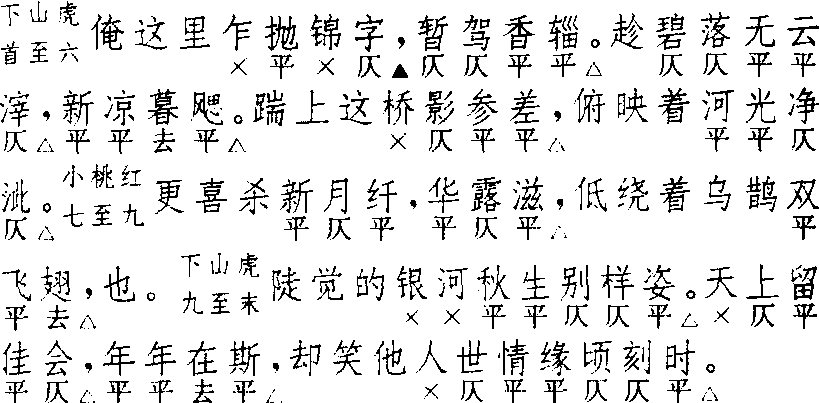 下山虎首至六 俺这里乍抛锦字，暂驾香辎。趁碧落无云
× 平 × 仄 ▲ 仄 仄 平 平 △ 仄 仄 平 平
滓，新凉暮飔。踹上这桥影参差，俯映着河光净
仄 △ 平 平 去 平 △ × 仄 平 平 △ 平 平 仄
泚。小桃红七至九 更喜杀新月纤，华露滋，低绕着乌鹊双
仄 △ 平 仄 平 平 仄 平 △ 平
飞翅，也。下山虎九至末 陡觉的银河秋生别样姿。天上留
平 去 △ × × 平 平 仄 仄 平 △ × 仄 平
佳会，年年在斯，却笑他人世情缘顷刻时。
平 仄 △ 平 平 去 平 △ × 仄 平 平 仄 仄 平 △